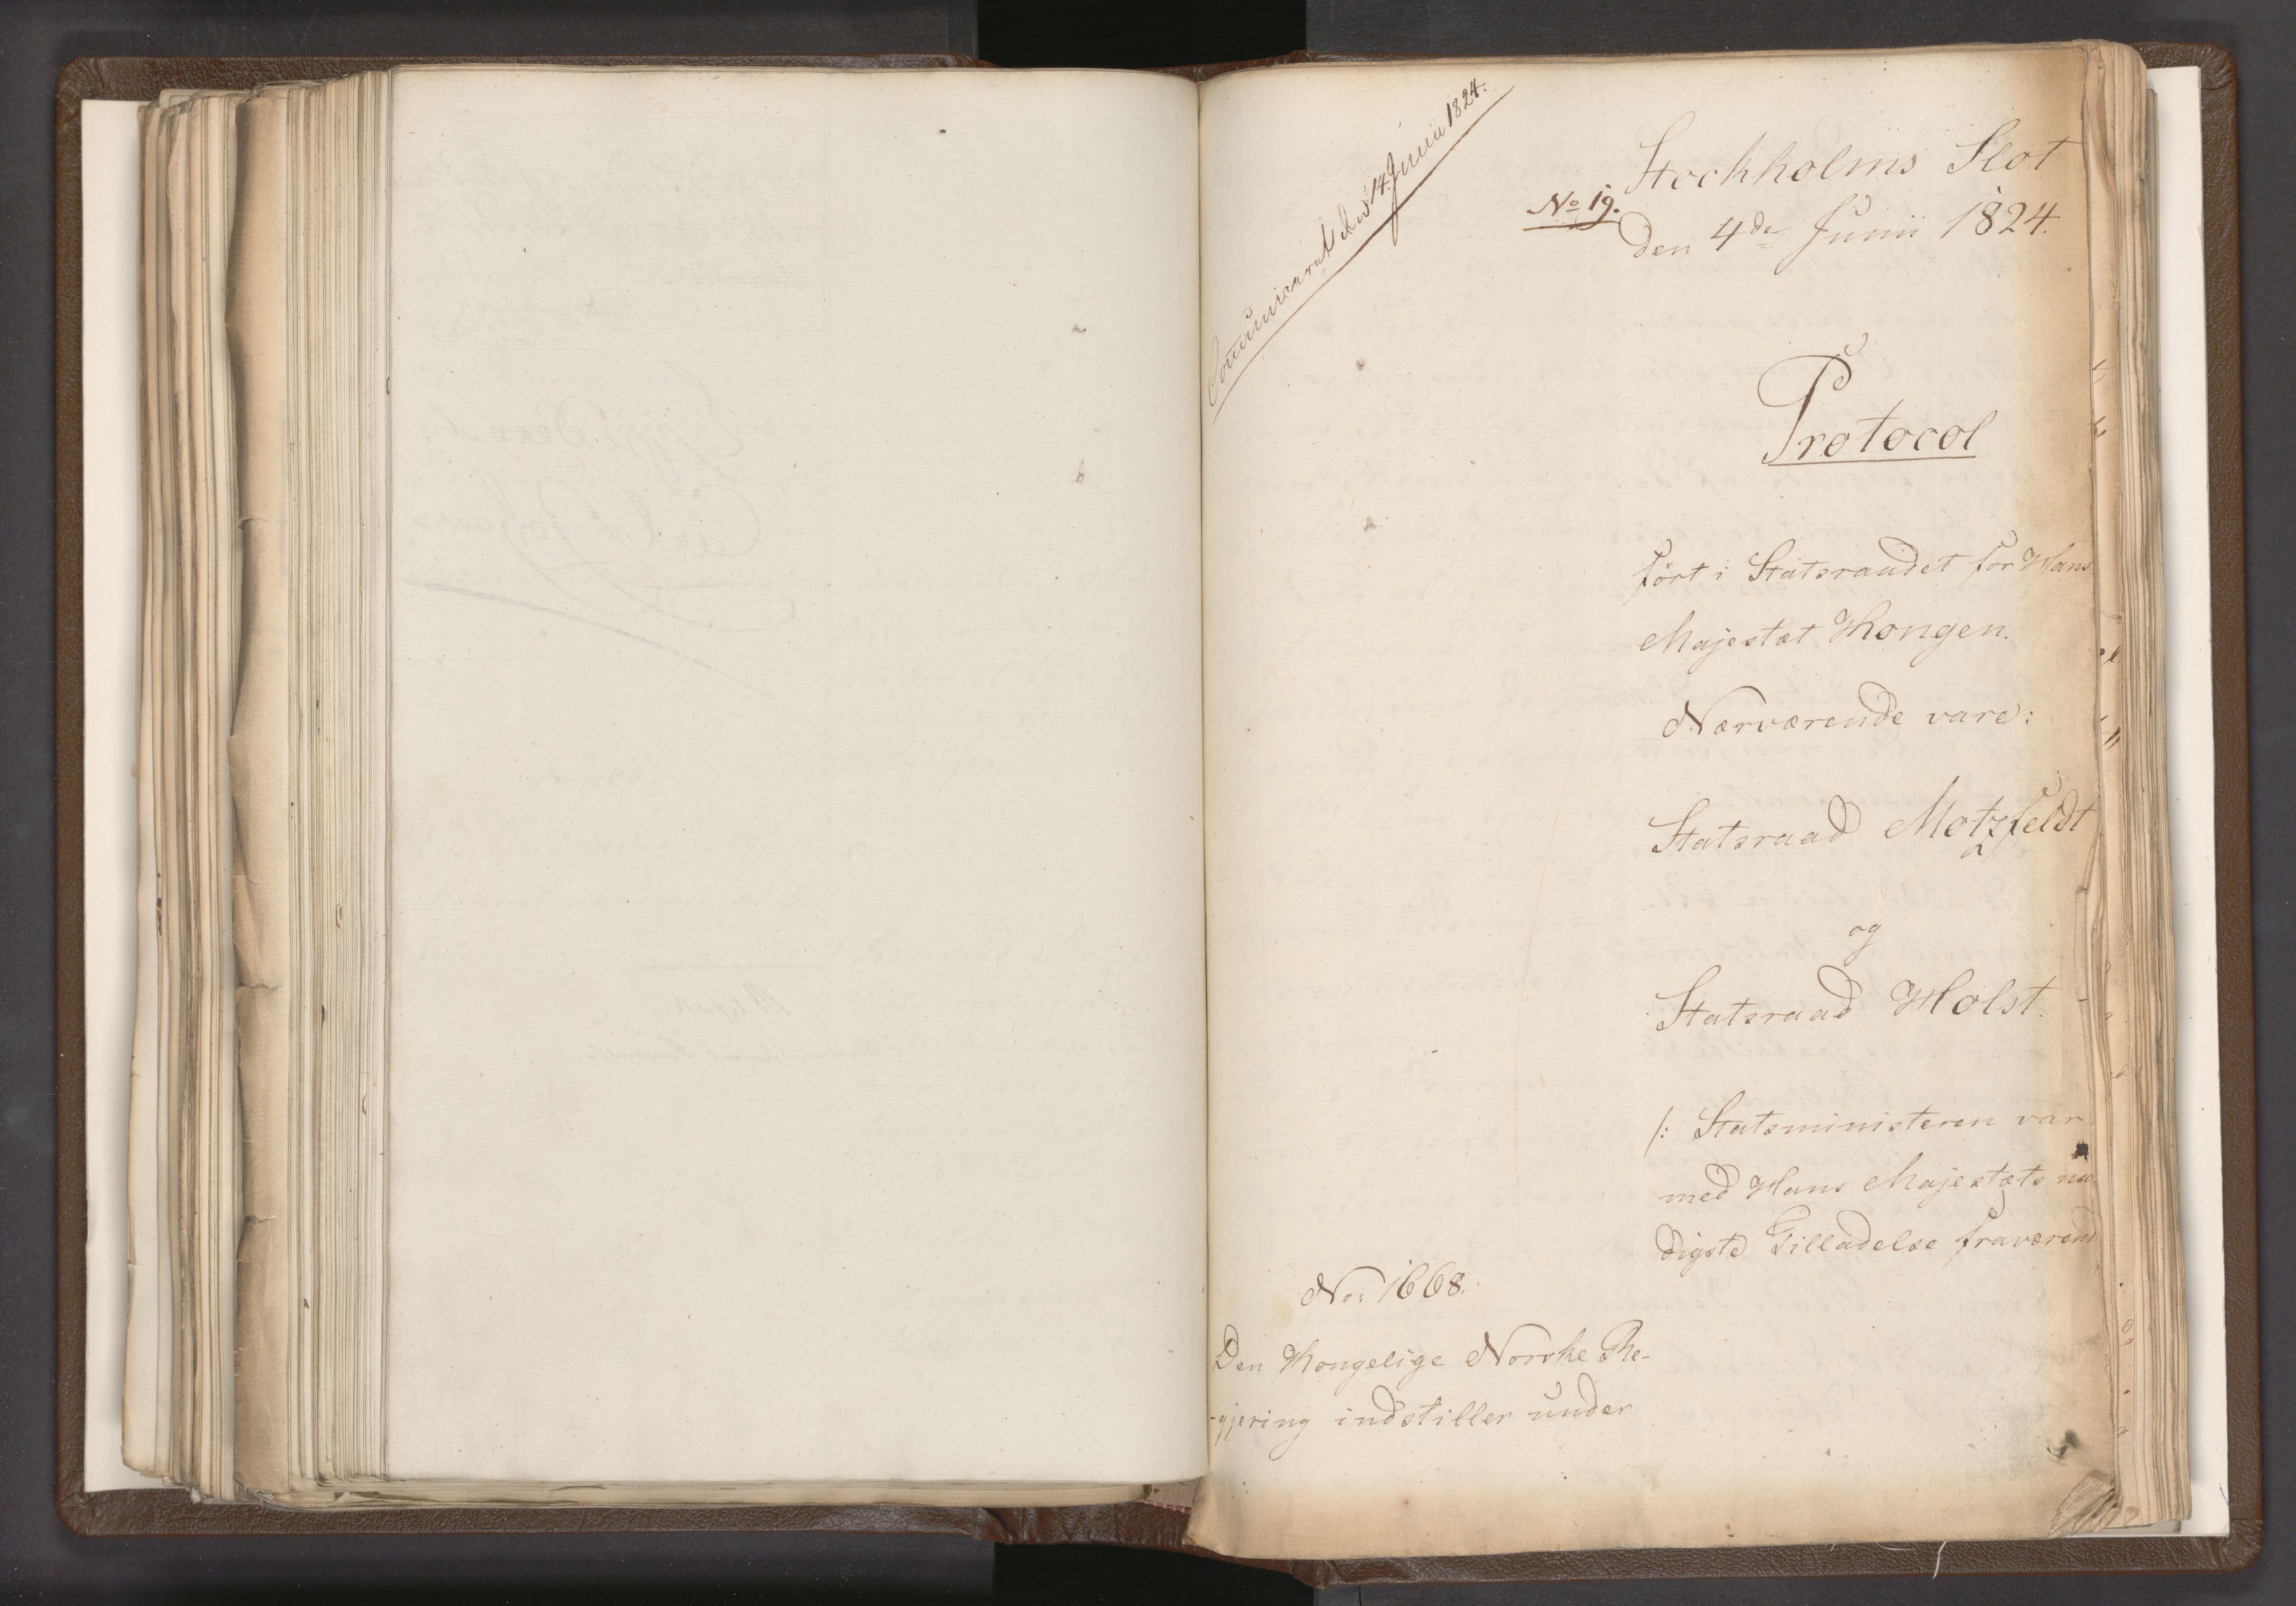 Communiceret den 14. Junii 1824.
No 19.
Stockholms Slot
den 4de Junii 1824.
Protocol
ført i Statsraadet for Hans
Majestæt Kongen.
Nærværende vare:
Statsraad Motzfeldt
og
Statsraad Holst.
/: Statsministeren var
med Hans Majestæts naa
digste Tilladelse fraværend
No: 1668.
Den Kongelige Norske Re-
-gjering indstiller under